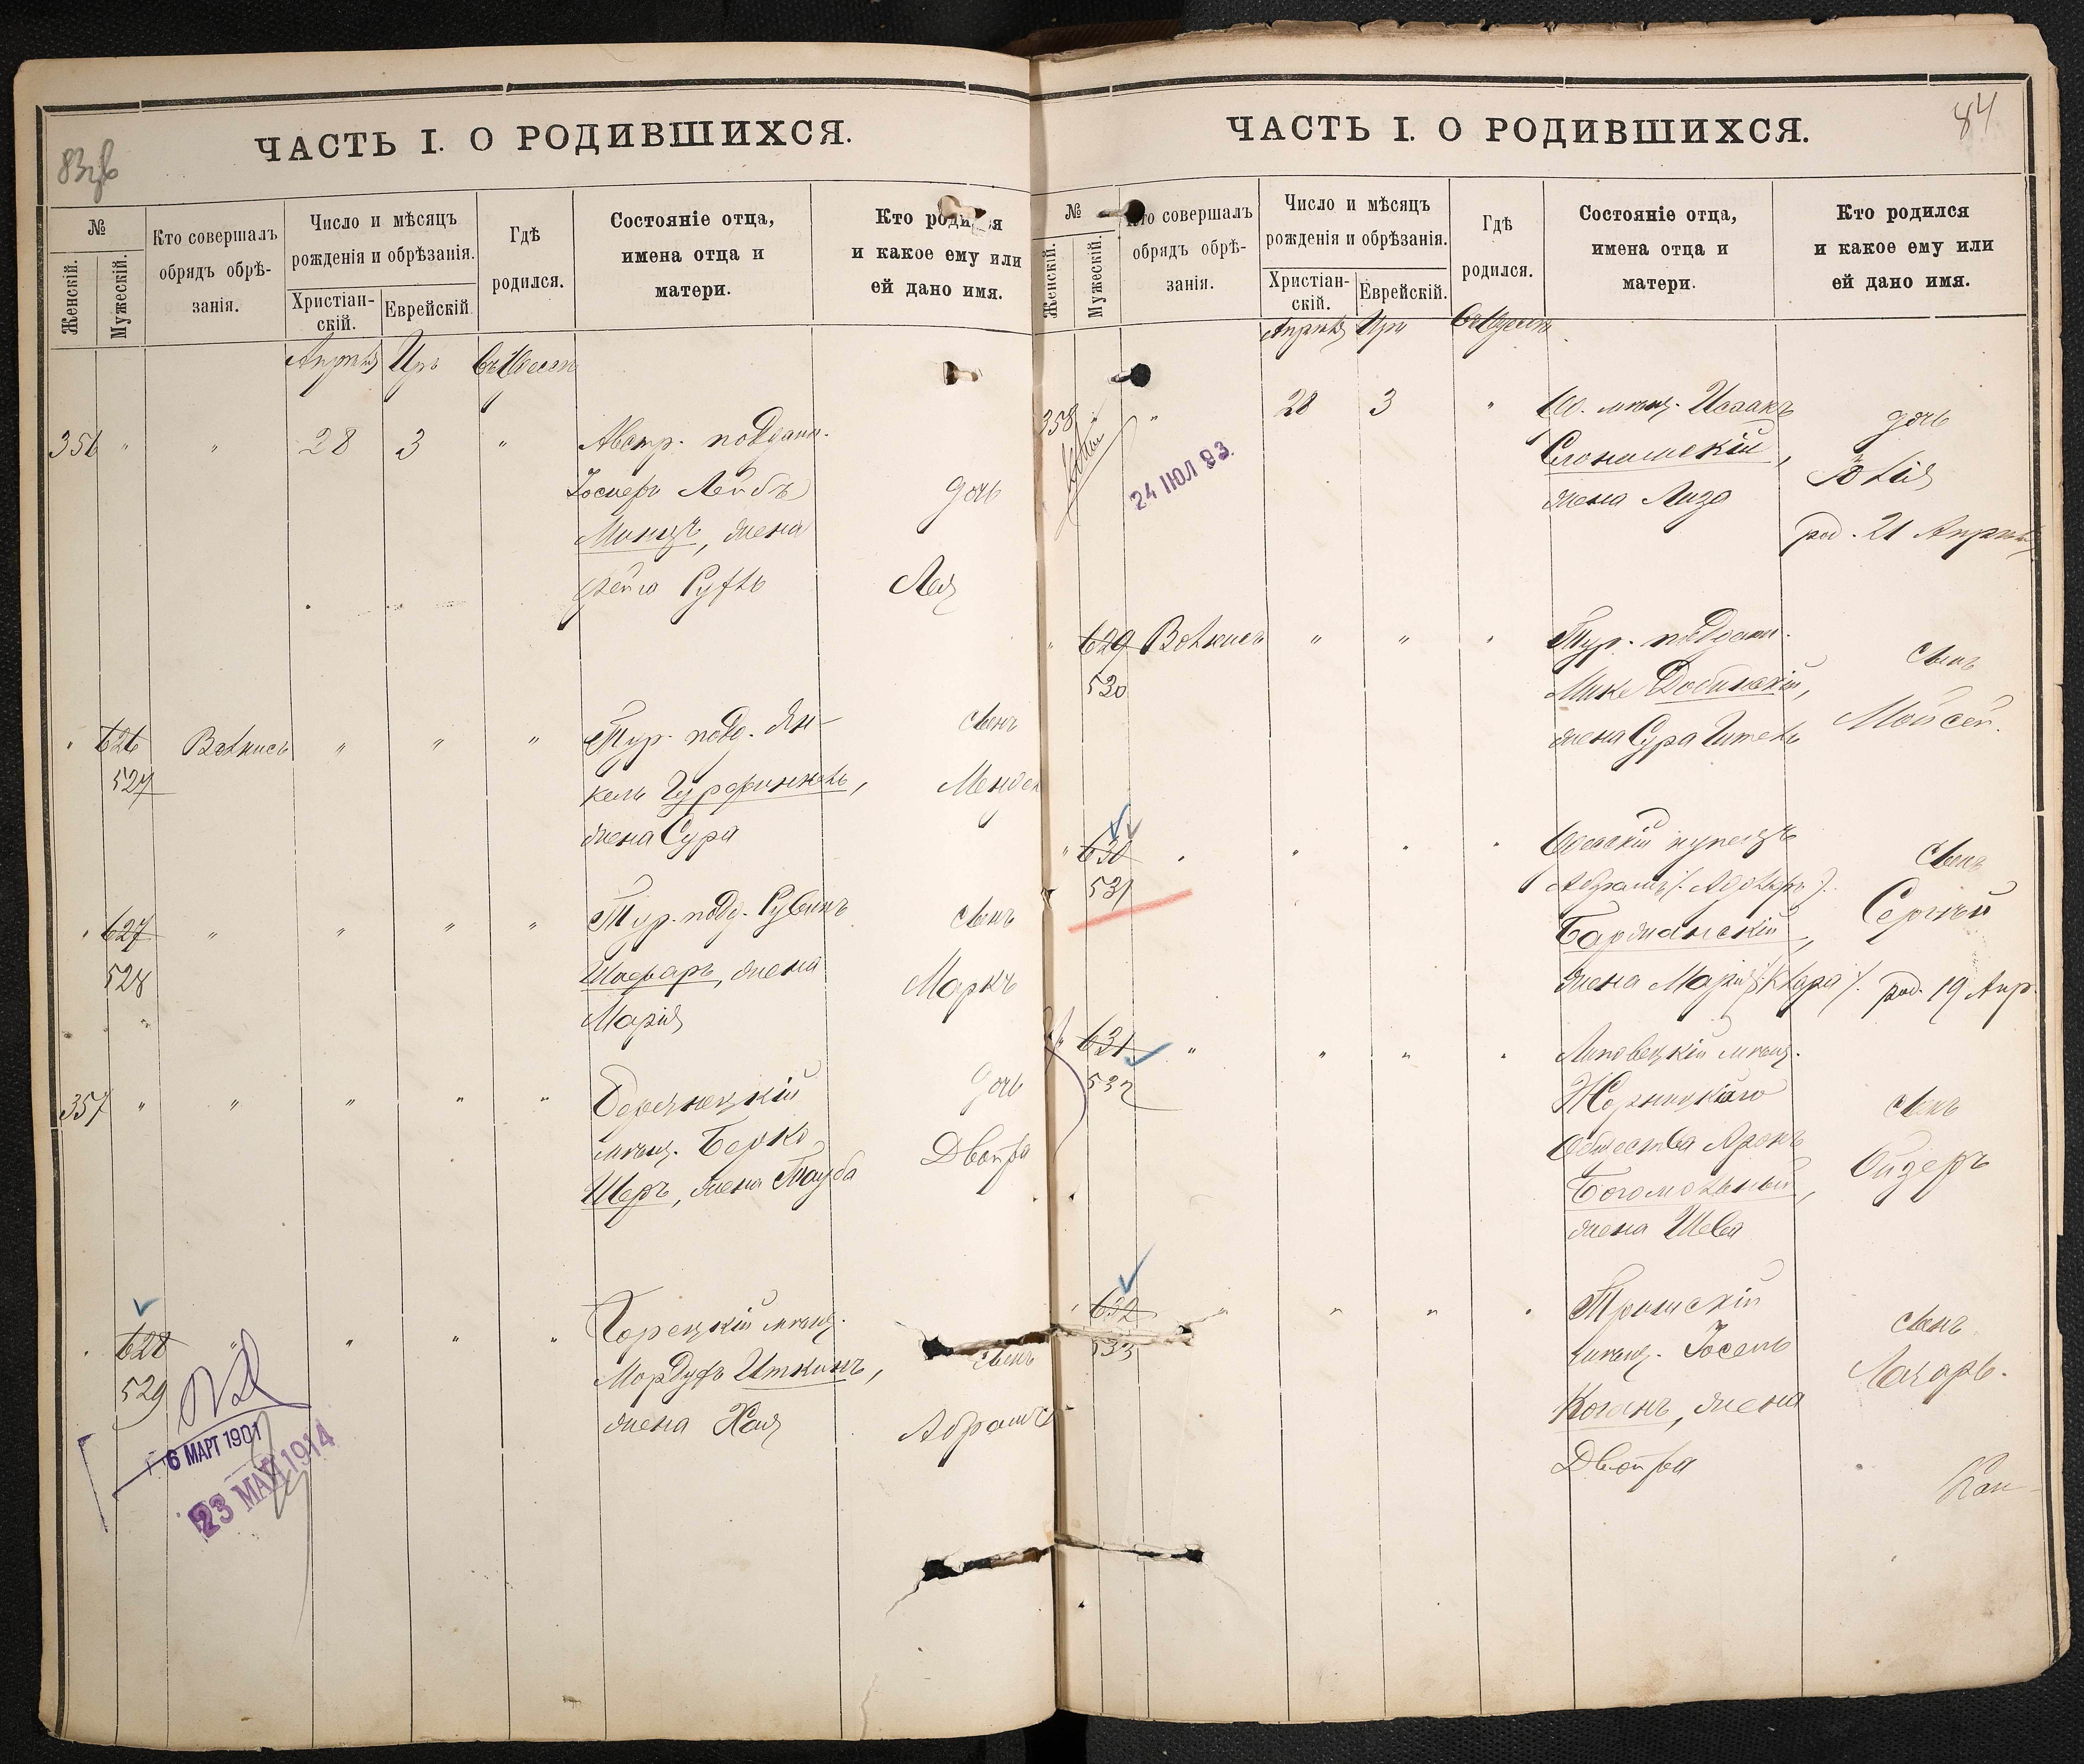 83об
ЧАСТЬ I. О РОДИВШИХСЯ.
№
Женскій.
Мужескій.
Кто совершалъ
обрядъ обрѣ-
занія.
Число и мѣсяцъ
рожденія и обрѣзанія.
Христіан-
скій.
Еврейскій.
Гдѣ
родился.
Состояніе отца,
имена отца и
матери.
Кто родился
и какое ему или
ей дано имя.
Апрѣля
Иръ
356 " " 28 3 "
Австр. поддан.
Іосифъ Лейбъ
Минцъ, жена
Фейга Руфль
дочь
Лея
" 626 " " "
527
Тур. подд. Ян-
кель Гурфинкель,
жена Сура
сынъ
Мендель
" 627 " " " "
528
Тур. подд. Рувинъ
Шафаръ, жена
Марія
сынъ
Маркъ
357 " " " " "
мѣщ. Берко
Шеръ, жена Тауба
дочь
Двойра
" 628 " " " "
529
Горецкій мѣщ.
Мордухъ Иткинъ,
жена Хая
сынъ
Абрамъ
6 МАРТ 1901
23 МАЯ 1914
84
ЧАСТЬ I. О РОДИВШИХСЯ.
№
Женскій.
Мужескій.
Кто совершалъ
обрядъ обрѣ-
занія.
Число и мѣсяцъ
рожденія и обрѣзанія.
Христіан-
скій.
Еврейскій.
Гдѣ
родился.
Состояніе отца,
имена отца и
матери.
Кто родился
и какое ему или
ей дано имя.
Апрѣля
Иръ
въ Одессѣ
358 " 28 3 "
24 ІЮЛ 93.
Од. мѣщ. Исаакъ
Слонимскій,
жена Лиза
дочь
Юлія
род. 21 Апрѣля
" 629 " " "
530
Тур. поддан.
Добинскій,
жена Сура Гитель
сынъ
Мойсей.
" 630 " " " "
531
Одесскій купецъ
Абрамъ /: Адольфъ :/
Баржанскій,
жена Марія /: Клара :/.
сынъ
Сергѣй
род. 19 Апр.
" 631 " " " "
532
Липовецкій мѣщ.
Жорнищскаго
Общества Аронъ
Богомольный,
жена Шева
сынъ
Ойзеръ
" 632 " " " "
533
мѣщ. Іосель
Коганъ, жена
Двойра
сынъ
Лазарь.